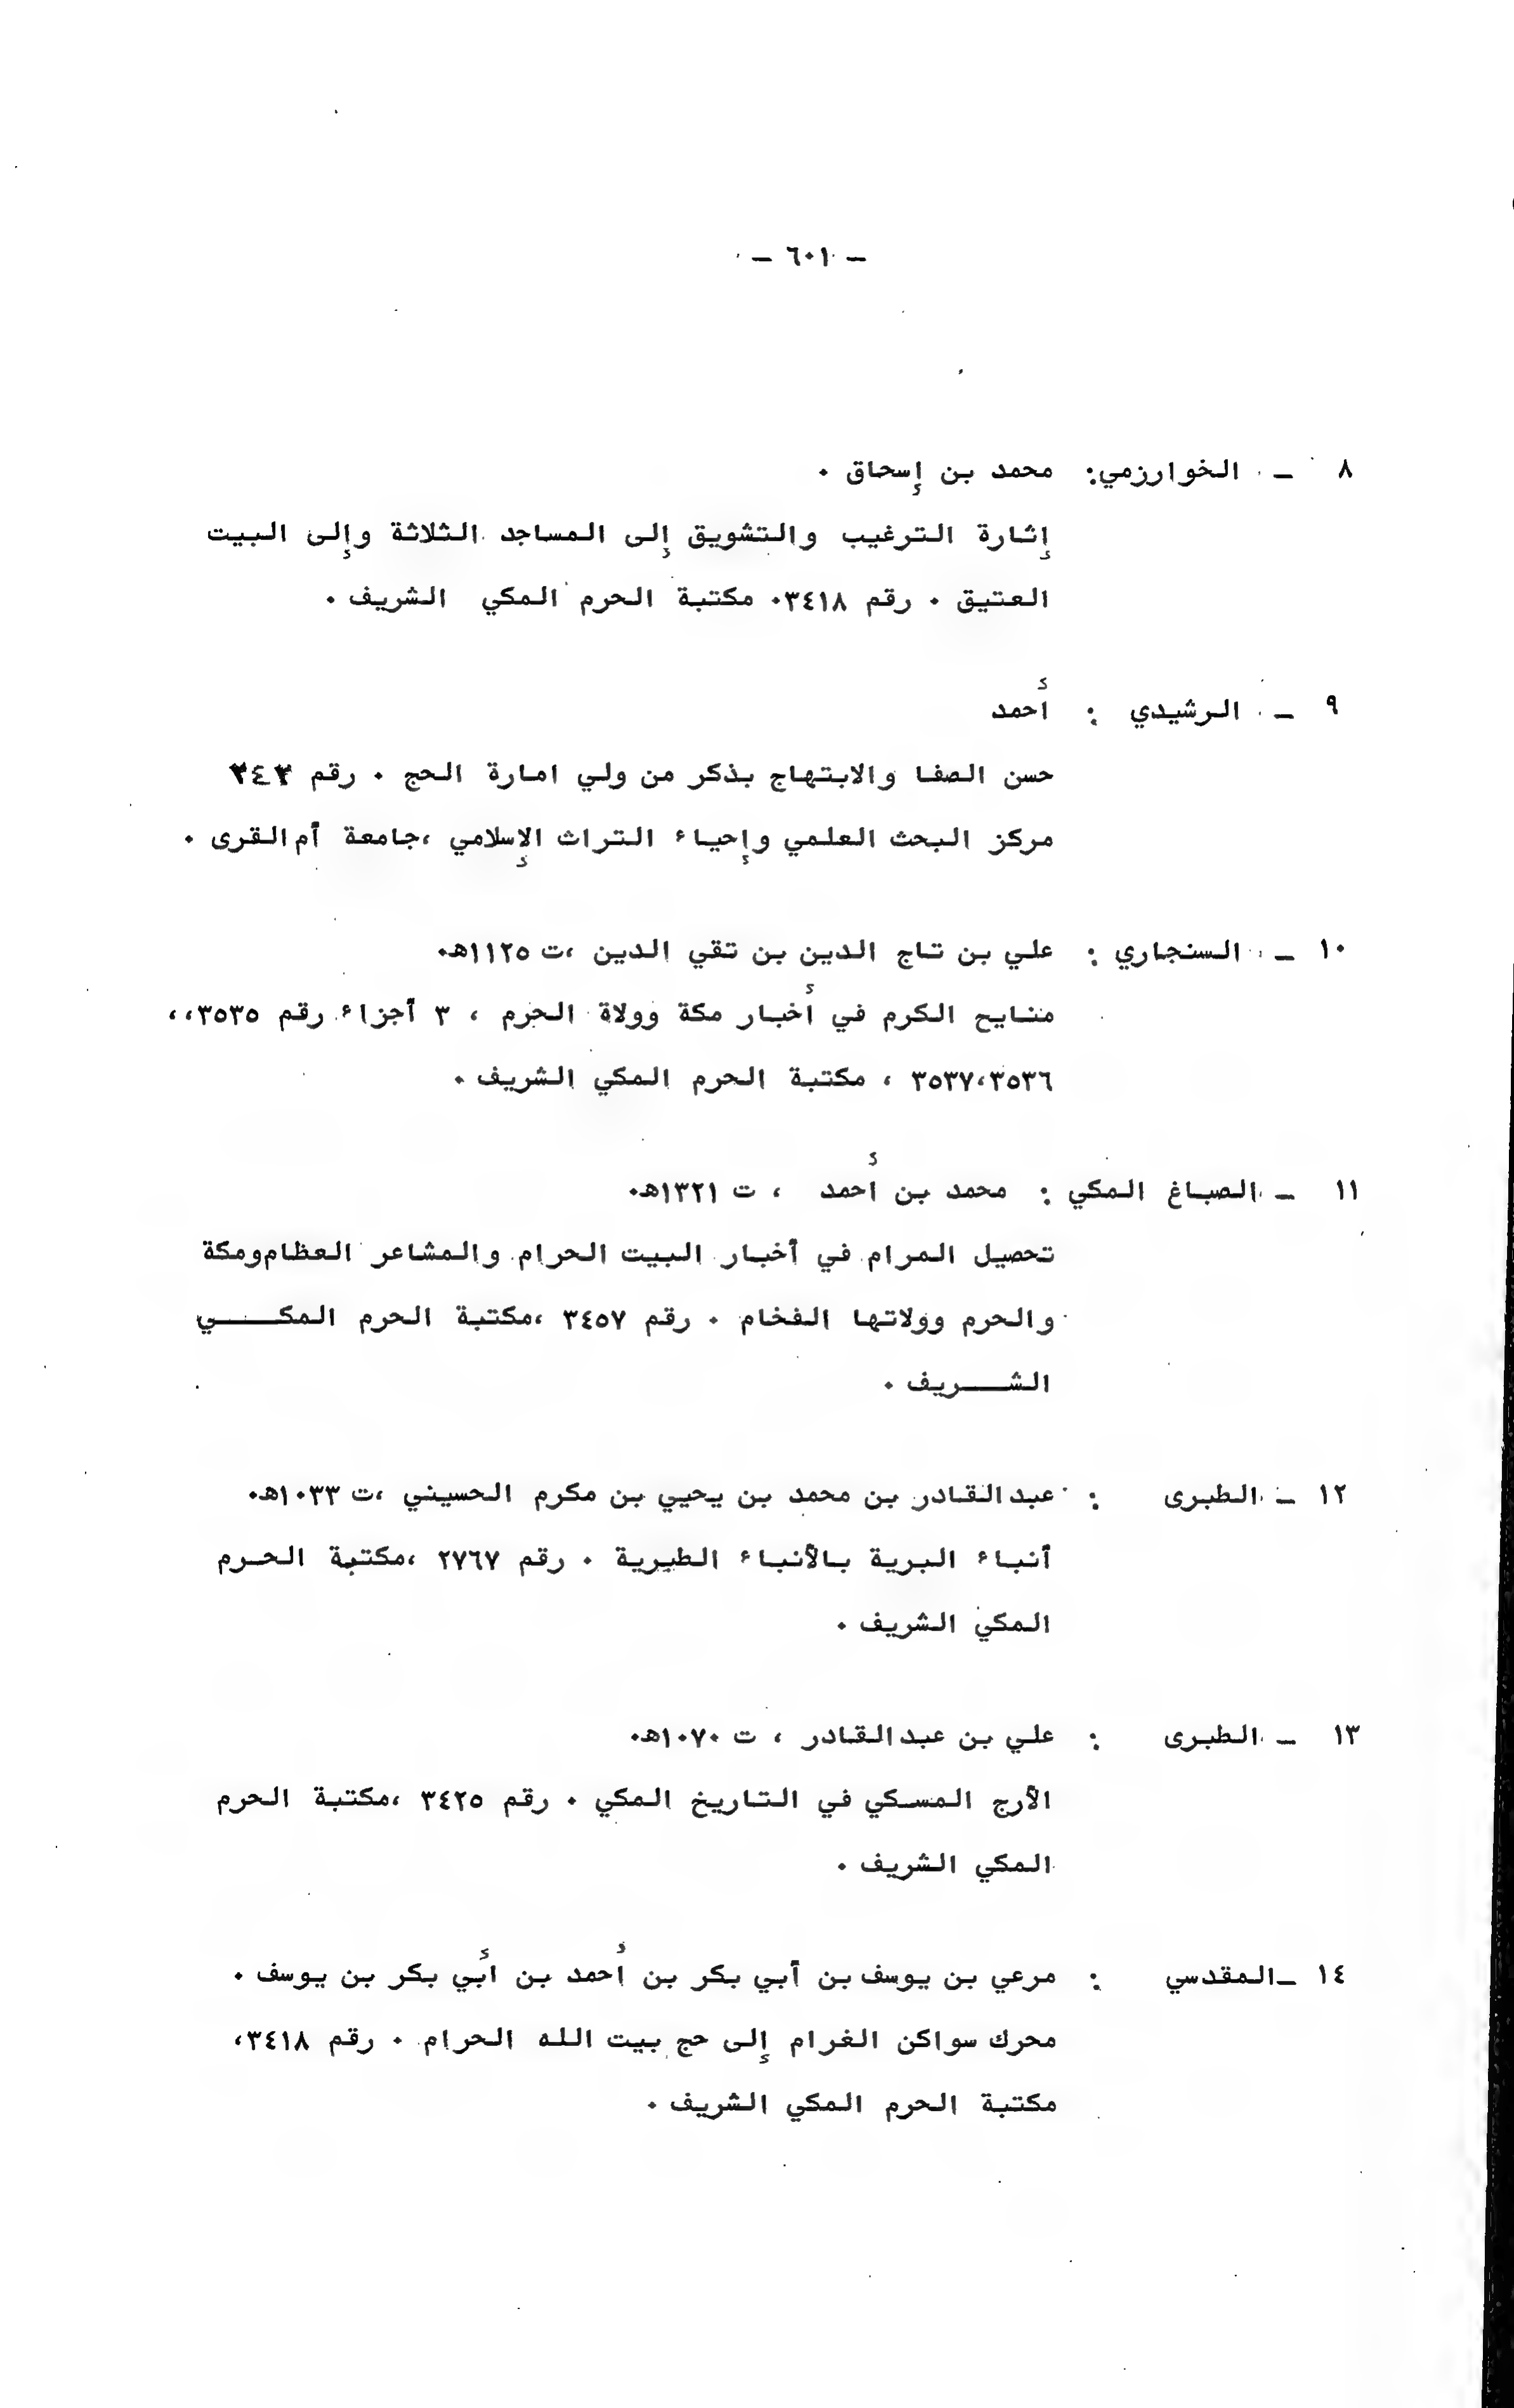 – ٦٠١ –
٨ – الخوارزمي: محمد بن إسحاق ٠
إثارة الترغيب والتشويق إلى المساجد الثلاثة وإلى البيت
العتيق ٠ رقم ٣٤١٨٠ مكتبة الحرم المكي الشريف ٠
٩ – الرشيدي : أحمد
حسن الصفا والابتهاج بذكر من ولي امارة الحج ٠ رقم ٣٤٣
مركز البحث العلمي وإحياء التراث الإسلامي ،جامعة أم القرى ٠
١٠ – السنجاري : علي بن تاج الدين بن تقي الدين ،ت ١١٢٥هـ٠
منايح الكرم في أخبار مكة وولاة الحرم ، ٣ أجزاء رقم ٣٥٣٥،،
٣٥٣٧،٣٥٣٦ ، مكتبة الحرم المكي الشريف ٠
١١ – الصباغ المكي : محمد بن أحمد ، ت ١٣٢١هـ٠
تحصيل المرام في أخبار البيت الحرام والمشاعر العظام ومكة
والحرم وولاتها الفخام ٠ رقم ٣٤٥٧ ،مكتبة الحرم المكـــــي
الشـــريف ٠
١٢ – الطبرى : عبد القادر بن محمد بن يحيي بن مكرم الحسيني ،ت ١٠٣٣هـ٠
أنباء البرية بالأنباء الطبرية ٠ رقم ٢٧٦٧ ،مكتبة الحـرم
المكي الشريف ٠
١٣ – الطبرى : علي بن عبد القادر ، ت ١٠٧٠هـ٠
الأرج المسكي في التاريخ المكي ٠ رقم ٣٤٢٥ ،مكتبة الحرم
المكي الشريف ٠
١٤ –المقدسي : مرعي بن يوسف بن أبي بكر بن أحمد بن أبي بكر بن يوسف ٠
محرك سواكن الغرام إلى حج بيت الله الحرام ٠ رقم ٣٤١٨،
مكتبة الحرم المكي الشريف ٠